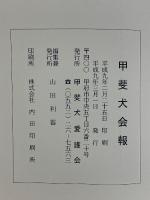 甲斐犬会報
平成九年二月二十五日 印刷
平成九年三月一日 発行
〒四〇〇 甲府市中央五丁目六番二十号
発行所 甲斐犬愛護会
☎(〇五五二)二六-七五六三
編集兼発行所 山田利器
印刷所 株式会社 内田印刷所